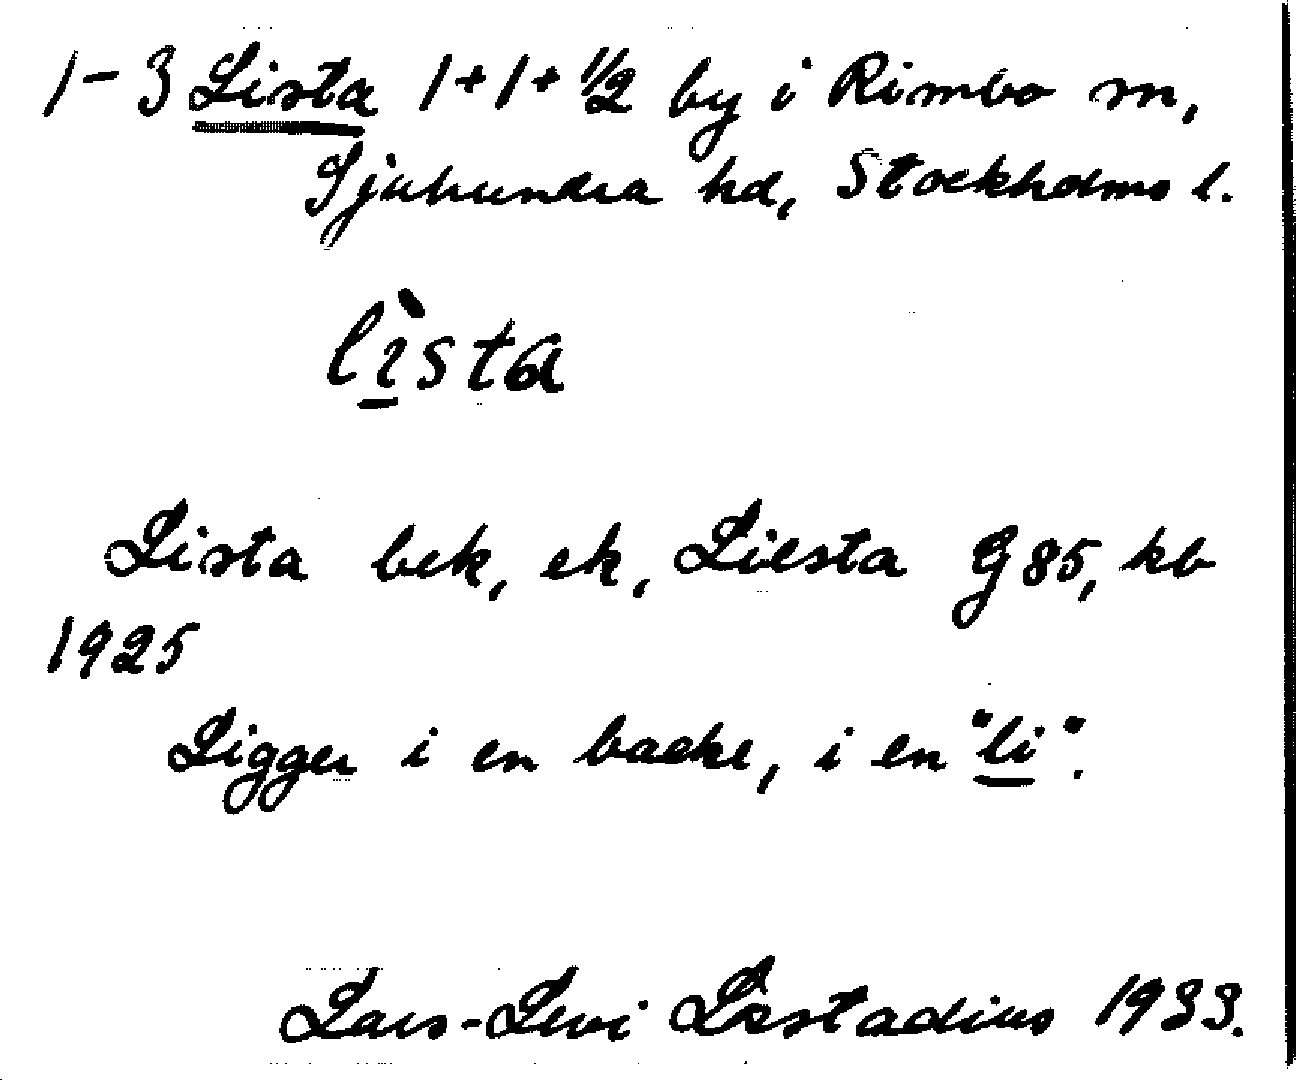 1-3 Lista 1+1+1/2 by i Rimbo sn,
Sjuhundra hd, Stockholms l.
lìsta
Lista bek, ek, Liesta G 85, kb
1925
Ligger i en backe, i en "li".
Lars-Levi Læstadius 1933.